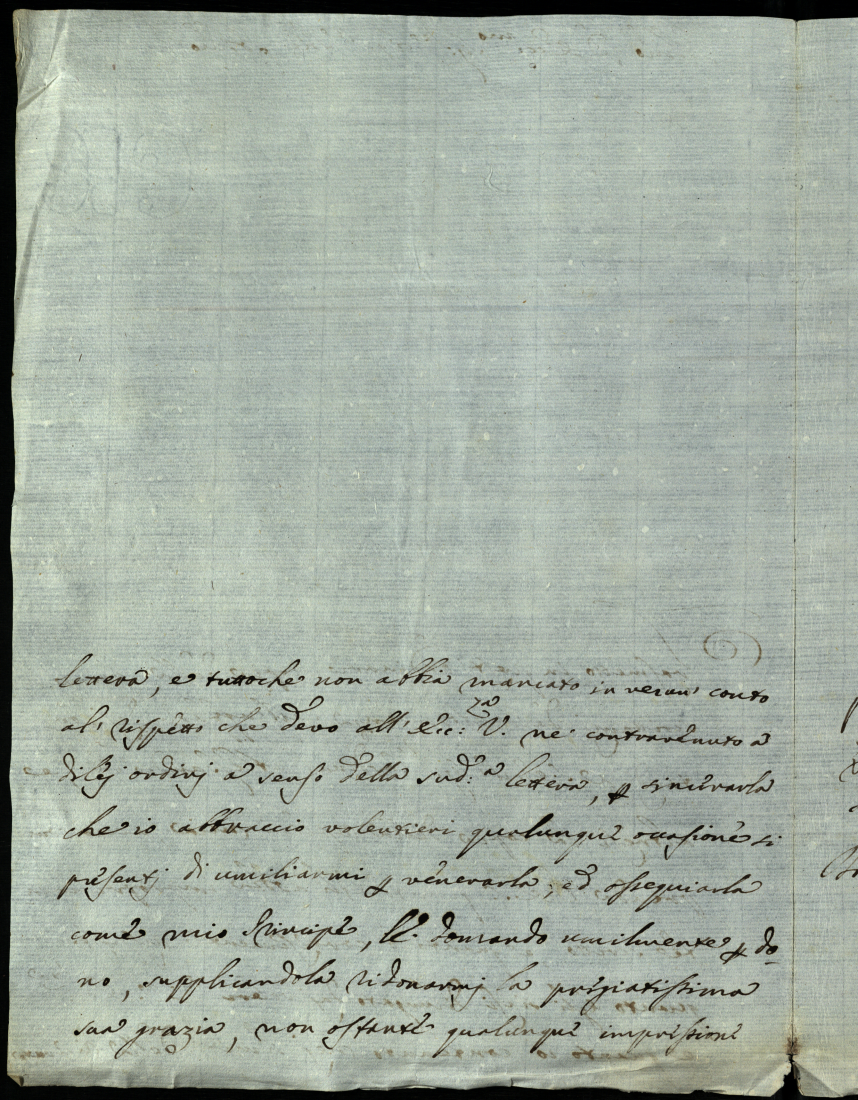 lettera, e tuttoche non abbia mancato in verun' conto
al' rispetto che devo all' Ecc:za V. ne' contravenuto a
di Lej ordinj a senso della sud:a lettera, ꝑ sincerarla
che io abbraccio volentieri qualunque occasione si
presentj di umiliarmi ꝑ venerarla, ed ossequiarla
come mio Principe, domando umilmente ꝑdo-
no, supplicandola ridonarmj la pregiatissima
sua grazia, non ostante qualunque impressione